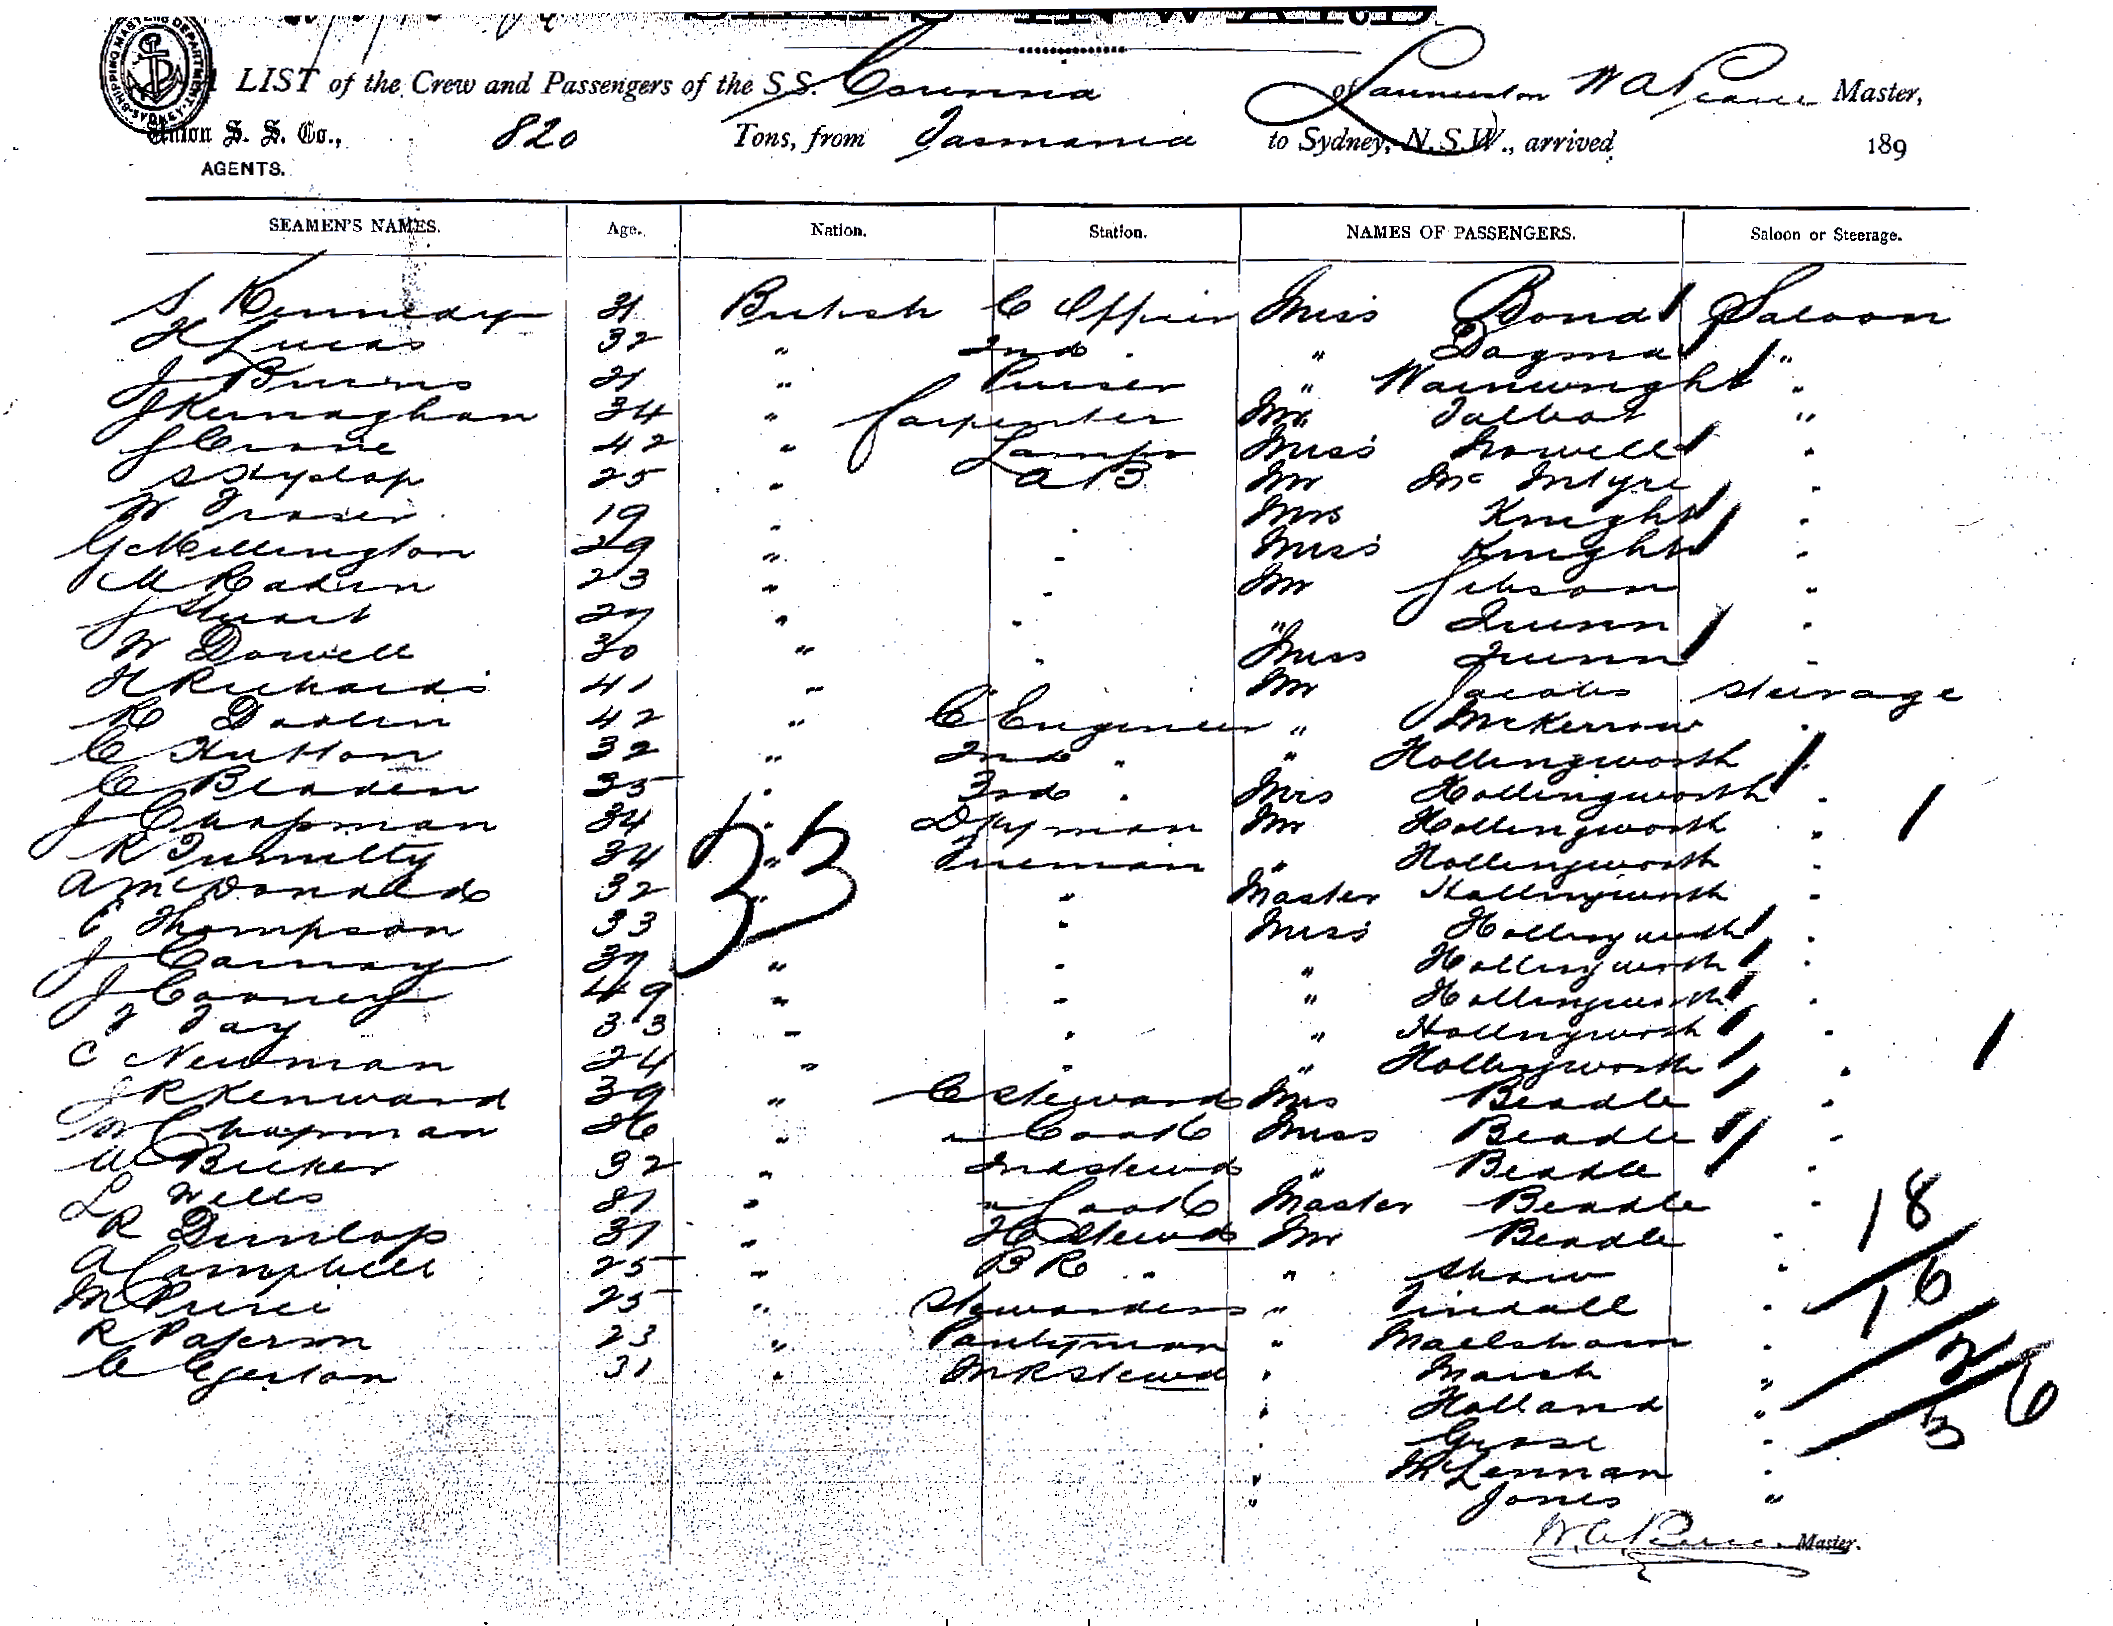 SHIPPING MASTER'S DEPARTMENT SYDNEY
A LIST of the Crew and Passengers of the S.S. Corinna of Launceston W A Pearce Master,
Union S. S. Co., AGENTS. 820 Tons, from Tasmania to Sydney, N.S.W., arrived 189
SEAMEN'S NAMES. Age. Nation. Station. NAMES OF PASSENGERS. Saloon or Steerage.
S Kennedy 31 British C Officer Miss Bond Saloon
H Lucas 32 " 2nd " " Dagmar "
J Burns 21 " Purser " Wainwright "
J Kernaghan 34 " Carpenter Mr Talbot "
J Crone 42 " Lamps Miss Howell "
S Hyslop 25 " A B Mr McIntyre "
W Fraser 19 " " Mrs Knight "
G Millington 29 " " Miss Knight "
M 23 " " Mr Gibson "
J Stuart 27 " " " Quinn "
W Dowell 30 " " Miss Quinn "
H Richards 41 " " Mr Jacobs Steerage
R 42 " C Engineer " McKerrow "
C Hutton 32 " 2nd " " Hollingworth "
C Bladen 35 " 3rd " Mrs Hollingworth "
J Chapman 34 " Dkyman Mr Hollingworth " 1
R Tumilty 34 " Fireman " Hollingworth "
A McDonald 32 " " Master Hollingworth "
33
C Thompson 33 " Miss Hollingworth "
J 37 " " " Hollingworth "
J Cooney 49 " " " Hollingworth "
F Fay 33 " " " Hollingworth "
C Newman 24 " " " Hollingworth " 1
J R Kenward 39 " C Steward Mrs Beadle "
W Chapman 26 " " Cook Miss Beadle "
W Bicker 32 " 2nd Stewd " Beadle "
L Wells 31 " " Cook Master Beadle "
R Dunlop 31 " F C Stewd Mr Beadle "
A Campbell 25 " B R " " Shaw "
M 25 " Stewardess " Tindall "
R Paterson 23 " Pantryman "
C Egerton 31 " M R Stewd " Marsh "
" Holland "
" Grose "
" McLennan "
" Jones "
18
16
2
3 6
W. A. Pearce Master.